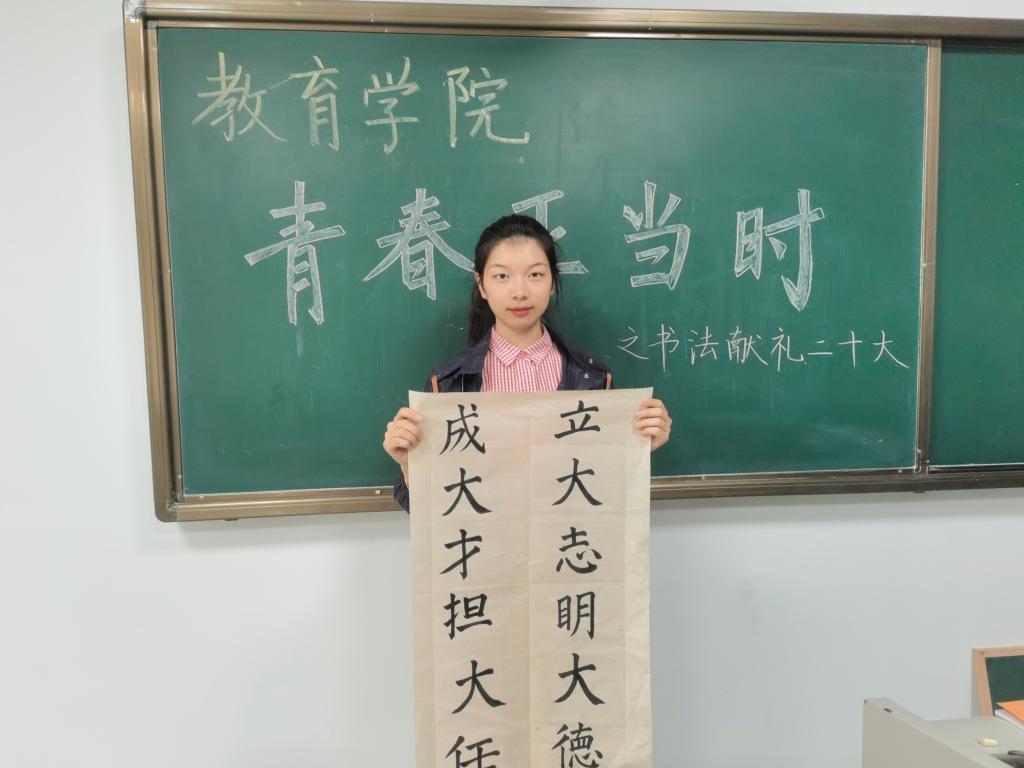 教育学院
青春正当时
之书法献礼二十大
立大志明大德
成大才担大任